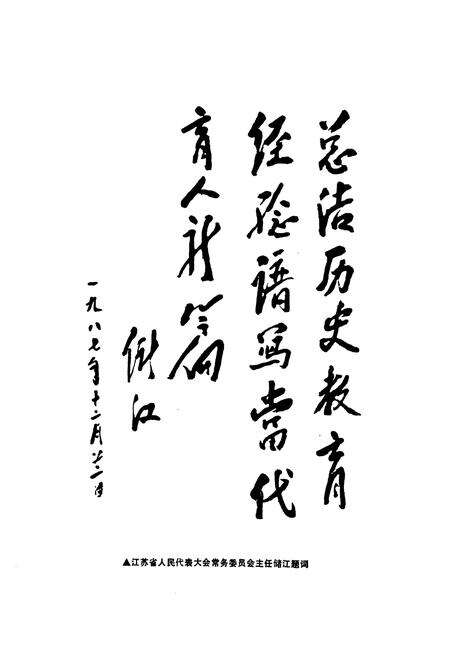 总结历史教育
经验谱写当代
育人新篇
储江
一九八七年十二月廿二日
▲江苏省人民代表大会常务委员会主任储江题词